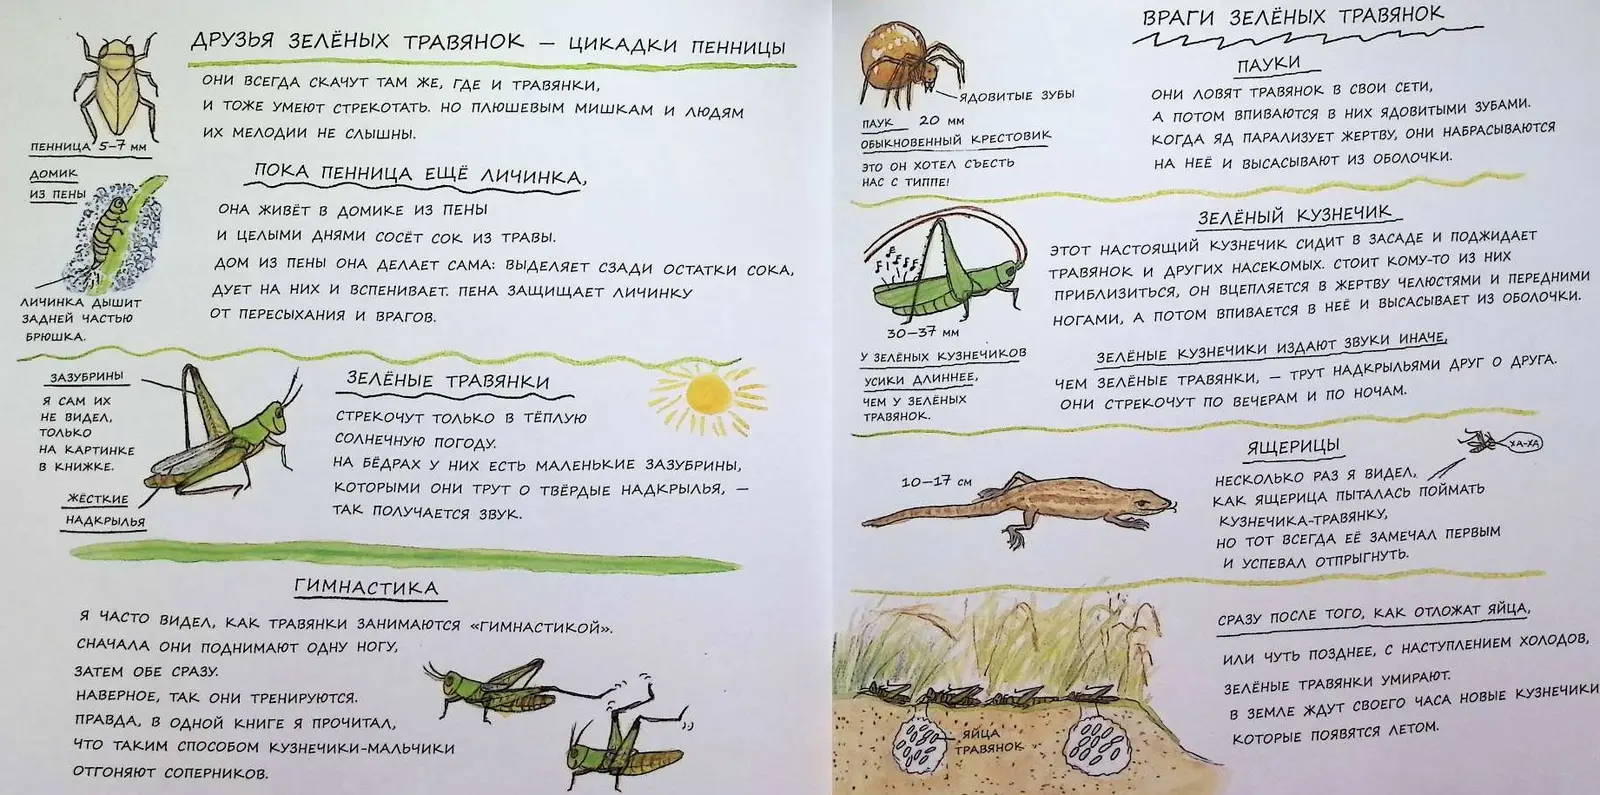 ДРУЗЬЯ ЗЕЛЁНЫХ ТРАВЯНОК – ЦИКАДКИ ПЕННИЦЫ
ОНИ ВСЕГДА СКАЧУТ ТАМ ЖЕ, ГДЕ И ТРАВЯНКИ,
И ТОЖЕ УМЕЮТ СТРЕКОТАТЬ. НО ПЛЮШЕВЫМ МИШКАМ И ЛЮДЯМ
ИХ МЕЛОДИИ НЕ СЛЫШНЫ.
ПЕННИЦА 5–7 ММ
ДОМИК
ИЗ ПЕНЫ
ЛИЧИНКА ДЫШИТ
ЗАДНЕЙ ЧАСТЬЮ
БРЮШКА.
ПОКА ПЕННИЦА ЕЩЁ ЛИЧИНКА,
ОНА ЖИВЁТ В ДОМИКЕ ИЗ ПЕНЫ
И ЦЕЛЫМИ ДНЯМИ СОСЁТ СОК ИЗ ТРАВЫ.
ДОМ ИЗ ПЕНЫ ОНА ДЕЛАЕТ САМА: ВЫДЕЛЯЕТ СЗАДИ ОСТАТКИ СОКА,
ДУЕТ НА НИХ И ВСПЕНИВАЕТ. ПЕНА ЗАЩИЩАЕТ ЛИЧИНКУ
ОТ ПЕРЕСЫХАНИЯ И ВРАГОВ.
ЗАЗУБРИНЫ
Я САМ ИХ
НЕ ВИДЕЛ,
ТОЛЬКО
НА КАРТИНКЕ
В КНИЖКЕ.
ЖЁСТКИЕ
НАДКРЫЛЬЯ
ЗЕЛЁНЫЕ ТРАВЯНКИ
СТРЕКОЧУТ ТОЛЬКО В ТЁПЛУЮ
СОЛНЕЧНУЮ ПОГОДУ.
НА БЁДРАХ У НИХ ЕСТЬ МАЛЕНЬКИЕ ЗАЗУБРИНЫ,
КОТОРЫМИ ОНИ ТРУТ О ТВЁРДЫЕ НАДКРЫЛЬЯ, –
ТАК ПОЛУЧАЕТСЯ ЗВУК.
ГИМНАСТИКА
Я ЧАСТО ВИДЕЛ, КАК ТРАВЯНКИ ЗАНИМАЮТСЯ «ГИМНАСТИКОЙ».
СНАЧАЛА ОНИ ПОДНИМАЮТ ОДНУ НОГУ,
ЗАТЕМ ОБЕ СРАЗУ.
НАВЕРНОЕ, ТАК ОНИ ТРЕНИРУЮТСЯ.
ПРАВДА, В ОДНОЙ КНИГЕ Я ПРОЧИТАЛ,
ЧТО ТАКИМ СПОСОБОМ КУЗНЕЧИКИ-МАЛЬЧИКИ
ОТГОНЯЮТ СОПЕРНИКОВ.
ВРАГИ ЗЕЛЁНЫХ ТРАВЯНОК
ЯДОВИТЫЕ ЗУБЫ
ПАУК 20 ММ
ОБЫКНОВЕННЫЙ КРЕСТОВИК
ЭТО ОН ХОТЕЛ СЪЕСТЬ
НАС С ТИППЕ!
ПАУКИ
ОНИ ЛОВЯТ ТРАВЯНОК В СВОИ СЕТИ,
А ПОТОМ ВПИВАЮТСЯ В НИХ ЯДОВИТЫМИ ЗУБАМИ.
КОГДА ЯД ПАРАЛИЗУЕТ ЖЕРТВУ, ОНИ НАБРАСЫВАЮТСЯ
НА НЕЁ И ВЫСАСЫВАЮТ ИЗ ОБОЛОЧКИ.
30–37 ММ
У ЗЕЛЁНЫХ КУЗНЕЧИКОВ
УСИКИ ДЛИННЕЕ,
ЧЕМ У ЗЕЛЁНЫХ
ТРАВЯНОК.
ЗЕЛЁНЫЙ КУЗНЕЧИК
ЭТОТ НАСТОЯЩИЙ КУЗНЕЧИК СИДИТ В ЗАСАДЕ И ПОДЖИДАЕТ
ТРАВЯНОК И ДРУГИХ НАСЕКОМЫХ. СТОИТ КОМУ-ТО ИЗ НИХ
ПРИБЛИЗИТЬСЯ, ОН ВЦЕПЛЯЕТСЯ В ЖЕРТВУ ЧЕЛЮСТЯМИ И ПЕРЕДНИМИ
НОГАМИ, А ПОТОМ ВПИВАЕТСЯ В НЕЁ И ВЫСАСЫВАЕТ ИЗ ОБОЛОЧКИ.
ЗЕЛЁНЫЕ КУЗНЕЧИКИ ИЗДАЮТ ЗВУКИ ИНАЧЕ,
ЧЕМ ЗЕЛЁНЫЕ ТРАВЯНКИ, – ТРУТ НАДКРЫЛЬЯМИ ДРУГ О ДРУГА.
ОНИ СТРЕКОЧУТ ПО ВЕЧЕРАМ И ПО НОЧАМ.
10–17 СМ
ЯЩЕРИЦЫ
ХА-ХА
НЕСКОЛЬКО РАЗ Я ВИДЕЛ,
КАК ЯЩЕРИЦА ПЫТАЛАСЬ ПОЙМАТЬ
КУЗНЕЧИКА-ТРАВЯНКУ,
НО ТОТ ВСЕГДА ЕЁ ЗАМЕЧАЛ ПЕРВЫМ
И УСПЕВАЛ ОТПРЫГНУТЬ.
ЯЙЦА
ТРАВЯНОК
СРАЗУ ПОСЛЕ ТОГО, КАК ОТЛОЖАТ ЯЙЦА,
ИЛИ ЧУТЬ ПОЗДНЕЕ, С НАСТУПЛЕНИЕМ ХОЛОДОВ,
ЗЕЛЁНЫЕ ТРАВЯНКИ УМИРАЮТ.
В ЗЕМЛЕ ЖДУТ СВОЕГО ЧАСА НОВЫЕ КУЗНЕЧИКИ,
КОТОРЫЕ ПОЯВЯТСЯ ЛЕТОМ.